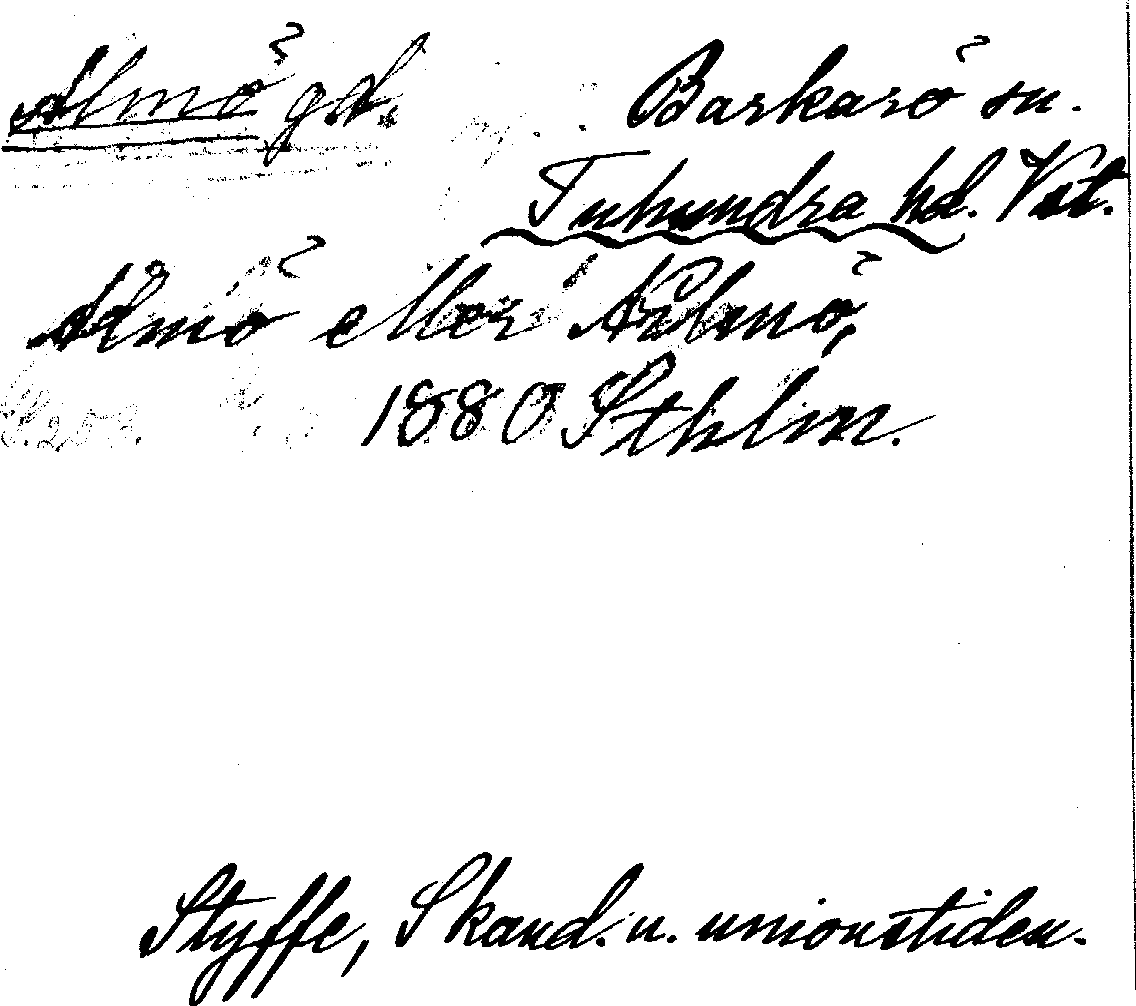 Almö gd. Barkarö sn.
Tuhundra hd. Vst.
Ålmö eller Årlmö,
1880 Sthlm.
Styffe, Skand. u. unionstiden.